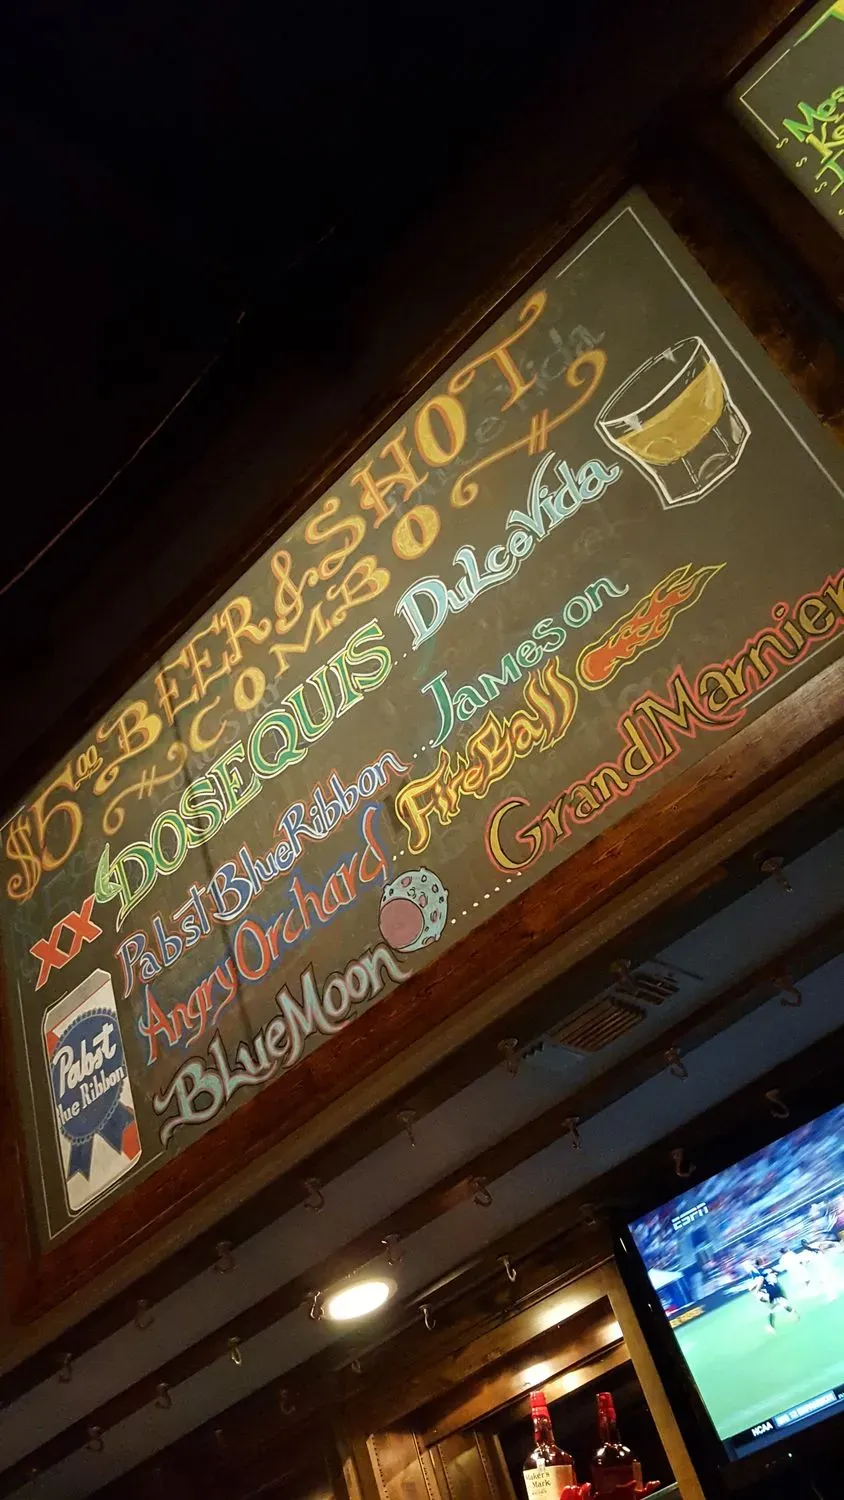 $5.00 BEER & SHOT
COMBO
XX DOSEQUIS .. DulceVida
Pabst Blue Ribbon ... Jameson
Angry Orchard ... FireBall
BLue Moon ...... Grand Marnier
Pabst
lue Ribbon
Mos
Ke
ESPN
NCAA
Maker's
Mark